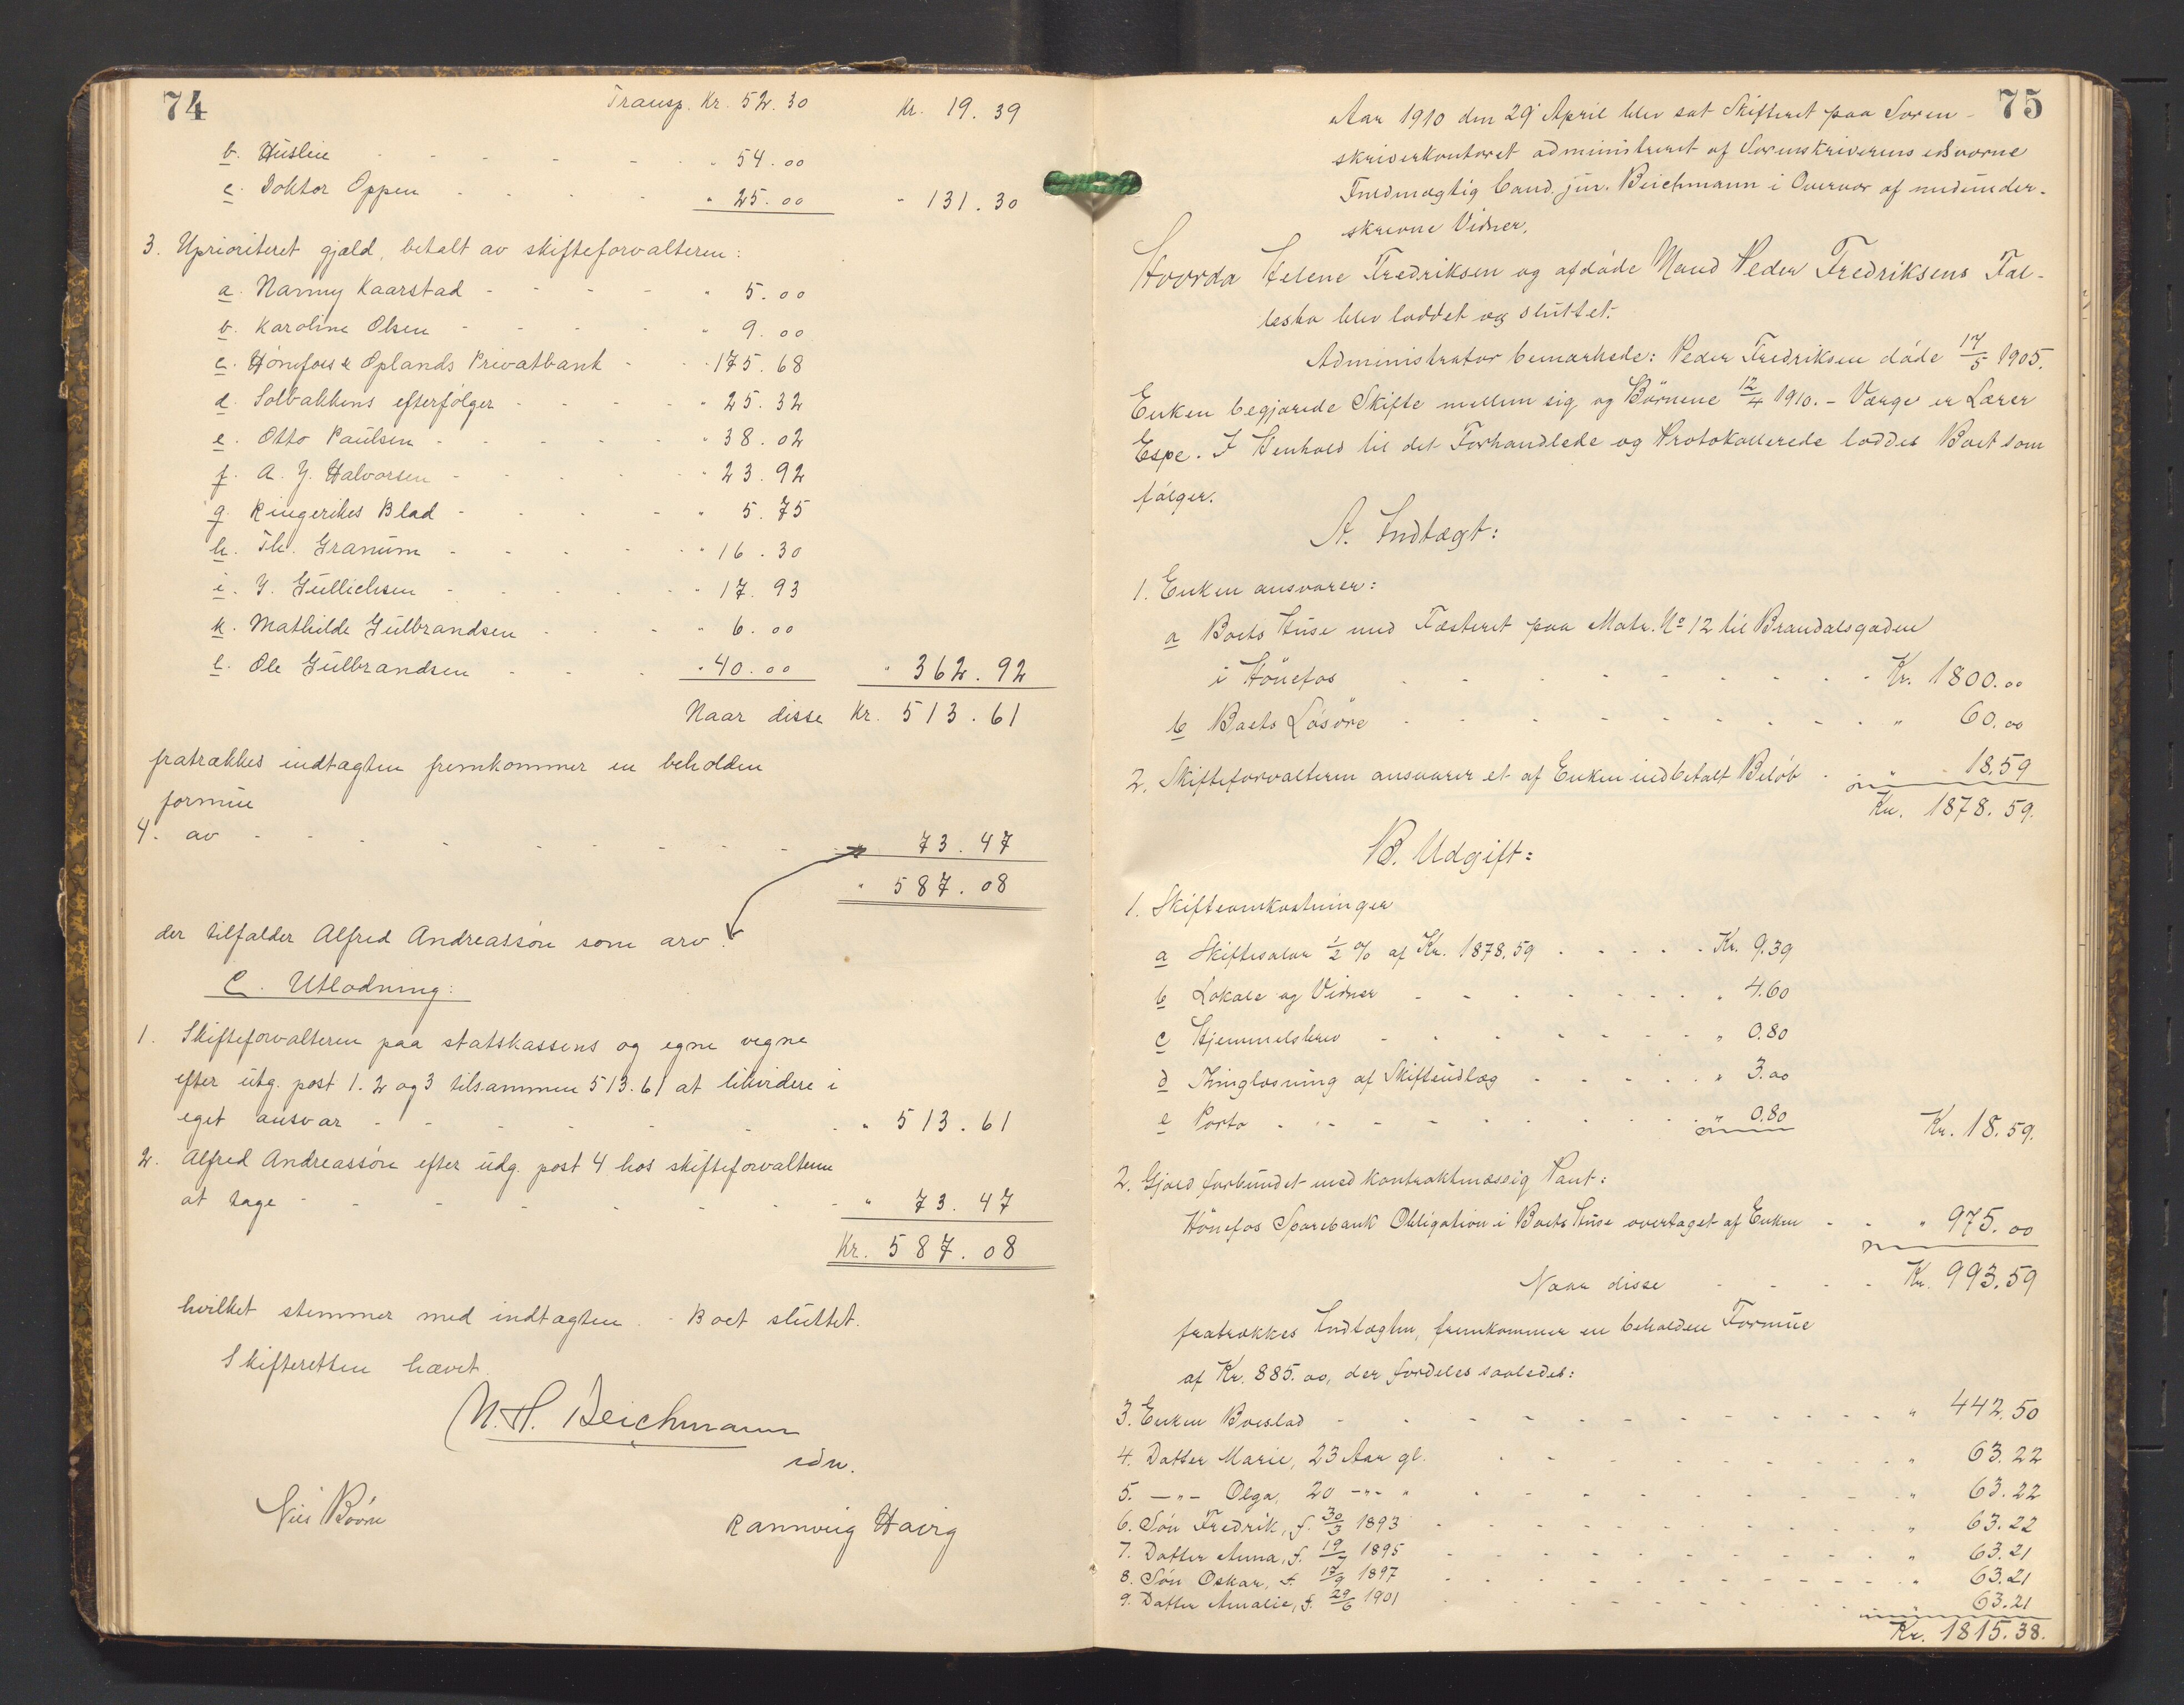 74
Transp. Kr. 52.30 Kr. 19.39
b. Husleie - - - - - " 54.00
c. Doktor Oppen - - - - " 25.00 " 131.30
3. Uprioriteret gjæld, betalt av skifteforvalteren:
a. Nanny Kaarstad - - - - " 5.00
b. Karoline Olsen - - - - " 9.00
c. Hønefoss & Oplands Privatbank - - " 175.68
d. Solbakkens efterfølger - - - - " 25.32
e. Otto Paulsen - - - - - " 38.02
f. A. J. Halvorsen - - - - " 23.92
g. Ringerikes Blad - - - - " 5.75
h. Th. Granum - - - - - " 16.30
i. J. Gullichsen - - - - - " 17.93
k. Mathilde Gulbrandsen - - - " 6.00
l. Ole Gulbrandsen - - - " 40.00 " 362.92
Naar disse Kr. 513.61
fratrækkes indtægten fremkommer en beholden
formue
4. av - - - - - - - - " 73.47
" 587.08
der tilfalder Alfred Andreassøn som arv.
C. Utlodning:
1. Skifteforvalteren paa statskassens og egne vegne
efter utg. post 1.2 og 3 tilsammen 513.61 at likvidere i
eget ansvar - - - - - - " 513.61
2. Alfred Andreassøn efter udg. post 4 hos skifteforvalteren
at tage - - - - - - " 73.47
Kr. 587.08
hvilket stemmer med indtægten. - Boet sluttet.
Skifteretten hævet.
N. H. Beichmann
edv.
Nils Rannveig Haverg
75
Aar 1910 den 29 April blev sat Skifteret paa Soren-
skriverkontoret administreret af Sorenskriverens edsvorne
Fuldmægtig Cand. jur. Beichmann i Overvær af medunder-
skrevne Vidner.
Hvorda Helene Fredriksen og afdøde Mand Peder Fredriksens Fæl-
lesbo blev loddet og sluttet.
Administrator bemærkede: Peder Fredriksen døde 17/5 1905.
Enken begjærede Skifte mellem sig og Børnene 12/4 1910. - Værge er Lærer
Espe. I Henhold til det Forhandlede og Protokollerede loddes Boet som
følger.
A. Indtægt:
1. Enken ansvarer:
a Boets Huse med Fæsteret paa Matr. No 12 til Brandalsgaden
i Hönefos - - - - - - - - Kr. 1800.00
b Boets Løsöre - - - - - - - " 60.00
2. Skifteforvalteren ansvarer et af Enken indbetalt Beløb - - " - 18,59
Kr. 1878.59.
B. Udgift:
1. Skifteomkostninger
a Skiftesalær 1/2 % af Kr. 1878.59 - - - - Kr. 9.39
b Lokale og Vidner - - - - - - " 4.60
c Hjemmelsbrev - - - - - - - " 0.80
d Thinglæsning af Skifteudlæg - - - - " 3.00
e Porto - - - - - - - - - " 0.80 Kr. 18.59.
2. Gjæld forbundet med kontraktmæssig Pant:
Hönefos Sparebank Obligation i Boets Huse overtaget af Enken - - " 975.00
Naar disse - - - Kr. 993.59
fratrækkes Indtægten, fremkommer en beholden Formue
af Kr. 885.00, der fordeles saaledes:
3. Enken Boeslod - - - - - - - - - " 442.50
4. Datter Marie, 23 Aar gl. - - - - - - - " 63.22
5. -"- Olga, 20 -"- " - - - - - - - " 63.22
6. Søn Fredrik, f. 30/3 1893 - - - - - - " 63.22
7. Datter Anna, f. 19/7 1895 - - - - - - " 63.21
8. Søn Oskar, f. 17/9 1897 - - - - - - - " 63.21
9. Datter Amalie, f. 29/6 1901 - - - - - - " 63.21
Kr. 1815.38.